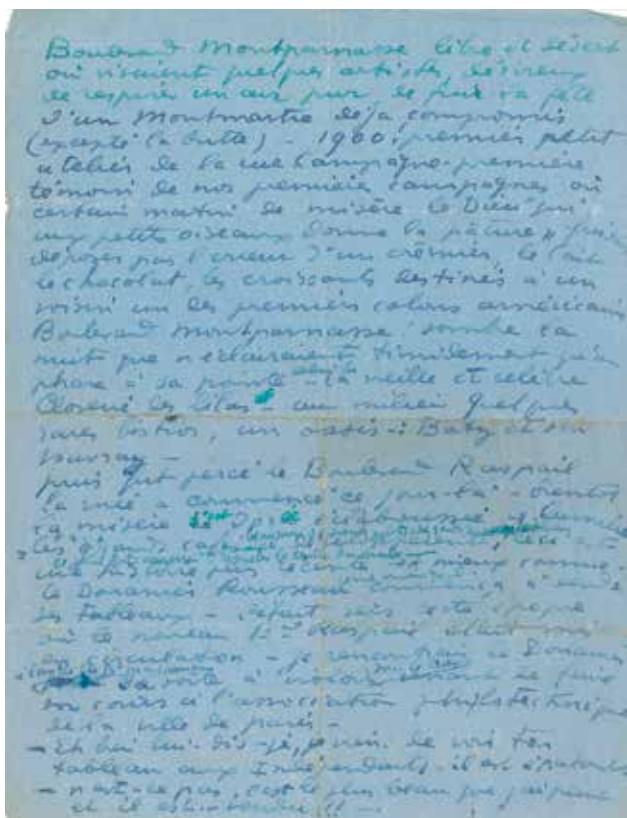 Boulevard Montparnasse libre et désert
où vivaient quelques artistes, désireux
de respirer un air pur de fuir la fête
d'un Montmartre déjà compromis
(excepté la butte) - 1900, premier petit
atelier de la rue Campagne-première
témoin de nos premières campagnes où
certain matin de misère le Dieu qui
aux petits oiseaux donne la pâture
déposer par l'erreur d'un crémier, le lait
le chocolat, les croissants destinés à un
voisin un des premiers colons américains
Boulevard Montparnasse sombre la
nuit que n'éclairaient timidement qu'un
phare à sa pointe - la vieille et célèbre
Closerie des lilas - au milieu quelques
rares bistros, un oasis : Baty et son
puis fut percé le Boulevard Raspail
la a commencé ce jour-là - bientôt
la misère
les grands
une histoire plus récente et mieux connue.
le Douanier Rousseau commença à vendre
ses tableaux - c'était vers cette époque
où ce nouveau Bd Raspail était mis
en circulation - je rencontrais le Douanier
sa boîte à violon venant de faire
son cours à l'association philotechnique
de la ville de Paris -
- Eh bien lui dis-je, je viens de voir ton
tableau aux Indépendants - il est épatant
- n'est-ce pas, c'est le plus beau que j'ai peint
et il est vendu !! -